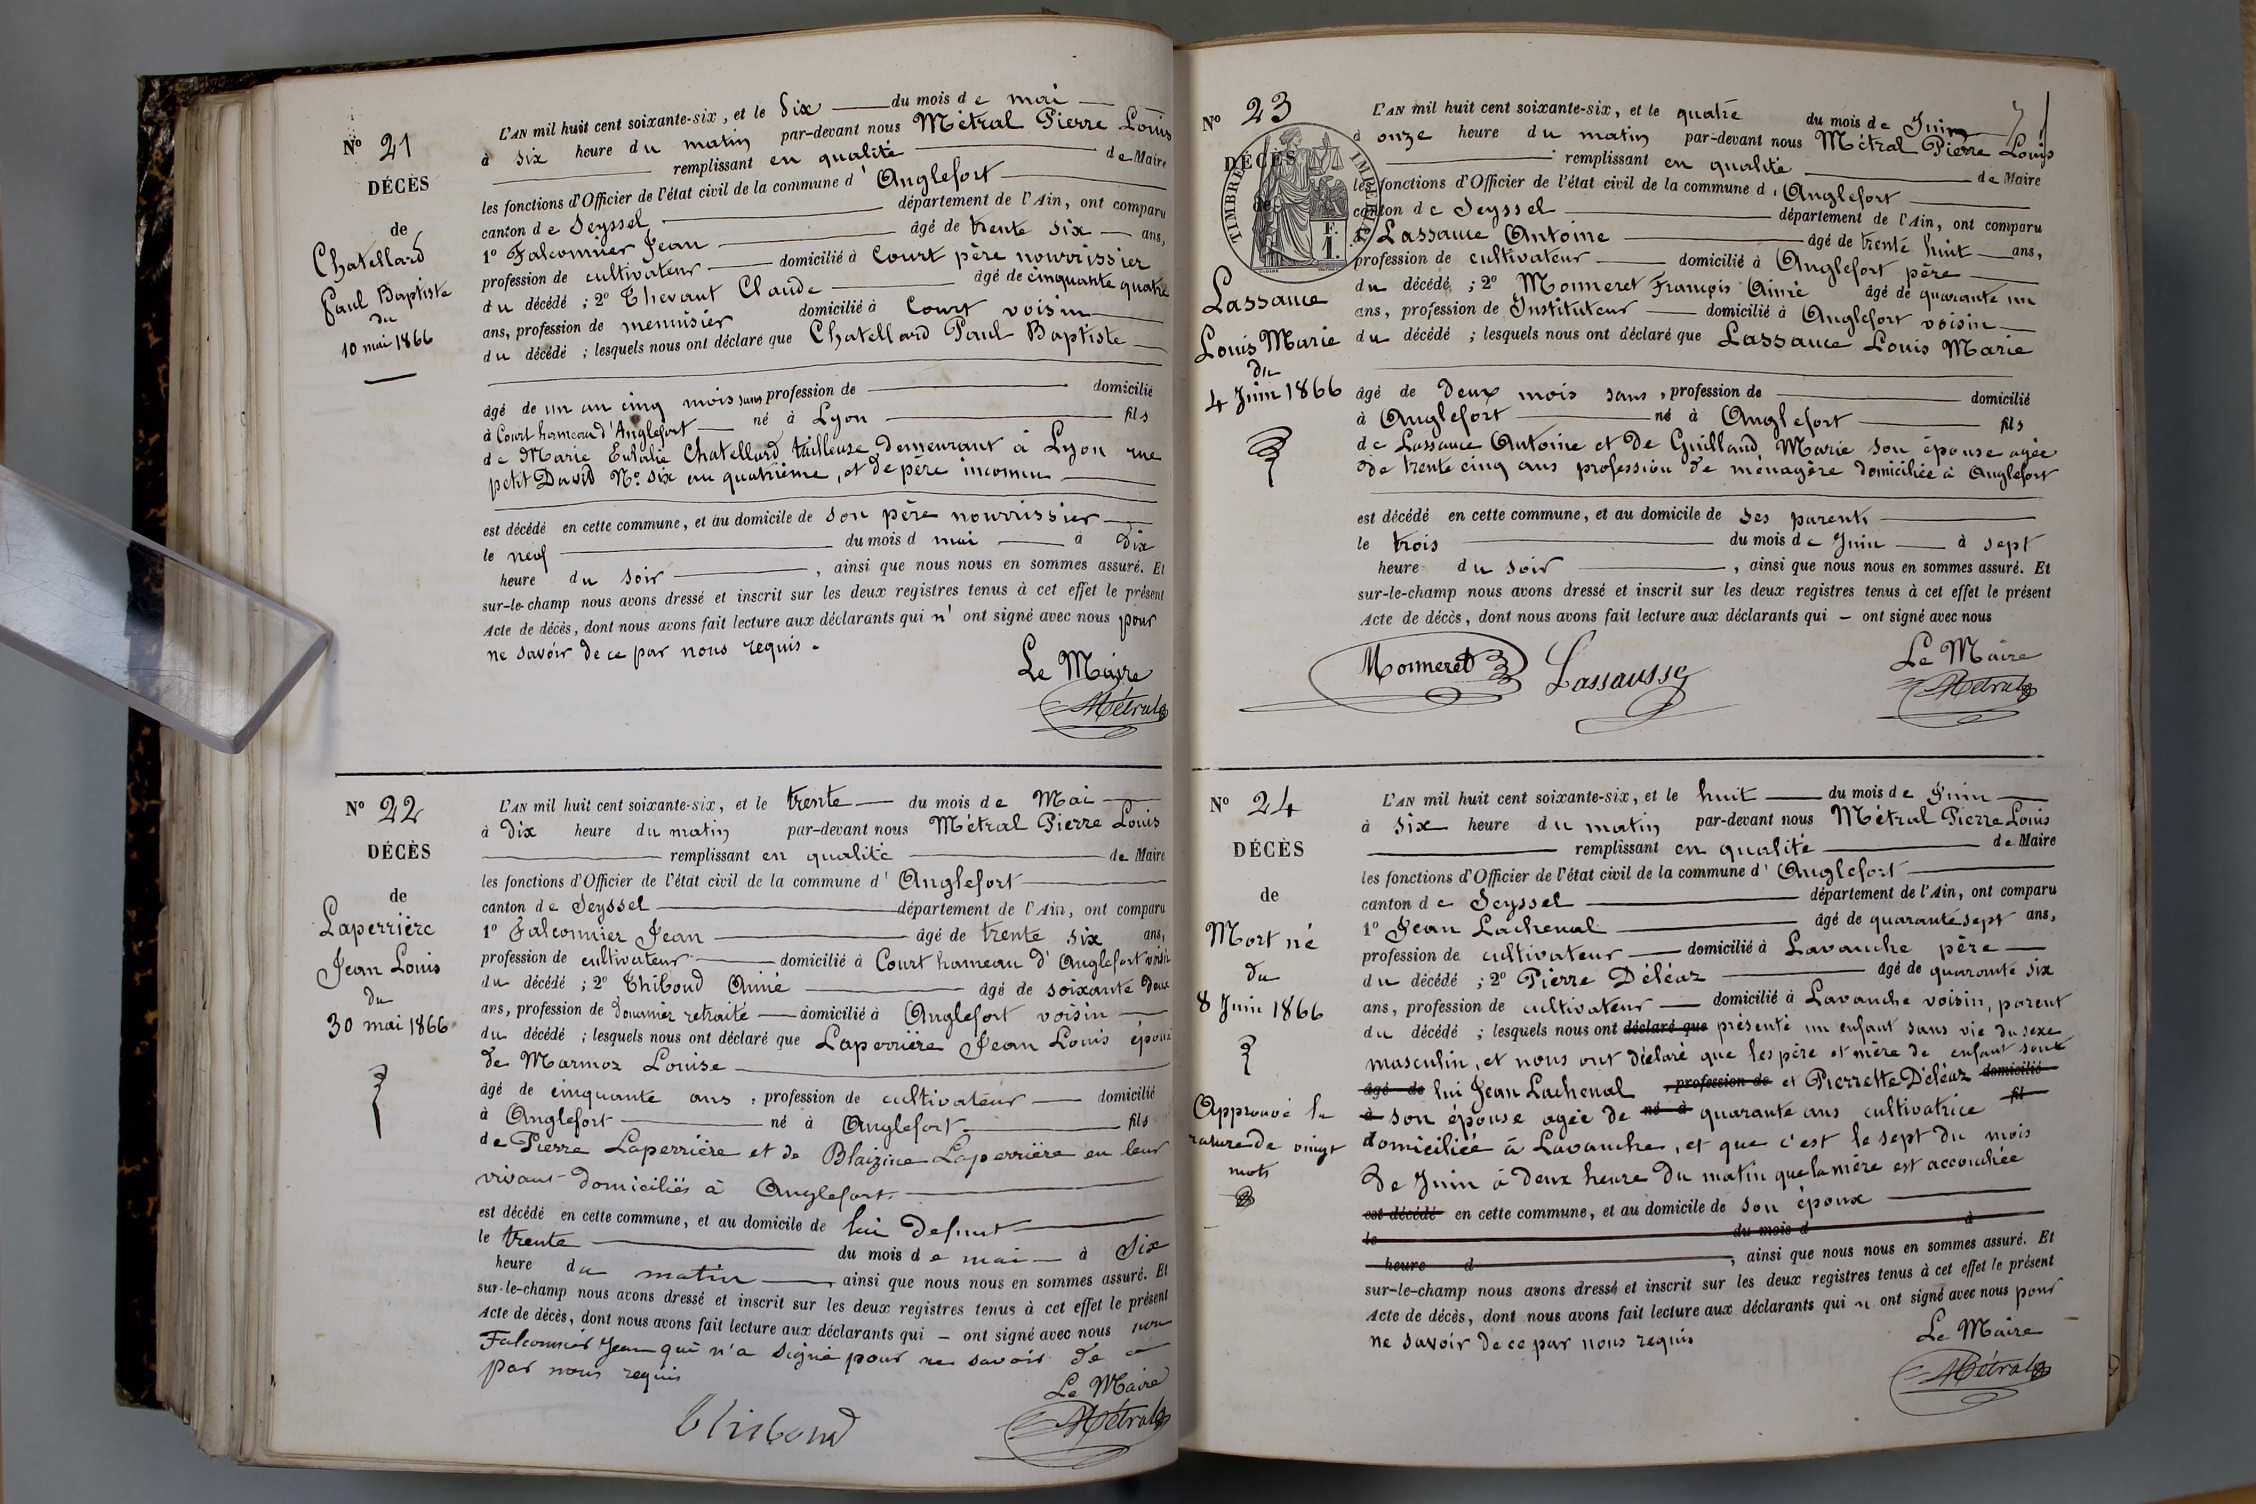 N° 21
DÉCÈS
de
Chatellard
Paul Baptiste
du
10 mai 1866
L'AN mil huit cent soixante-six, et le Dix du mois de mai
à six heure du matin par-devant nous Métral Pierre Louis
remplissant en qualité de Maire
les fonctions d'Officier de l'état civil de la commune d'Anglefort
canton de Seyssel département de l'Ain, ont comparu
1° Falconnier Jean âgé de trente six ans,
profession de cultivateur domicilié à Court père nourrissier
du décédé ; 2° Thevant Claude âgé de cinquante quatre
ans, profession de menuisier domicilié à Court voisin
du décédé ; lesquels nous ont déclaré que Chatellard Paul Baptiste
âgé de un an cinq mois sans profession de domicilié
à Court hameau d'Anglefort né à Lyon fils
de Marie Eulalie Chatellard tailleuse demeurant à Lyon rue
petit David N° six au quatrième, et de père inconnu
est décédé en cette commune, et au domicile de son père nourrissier
le neuf du mois d mai à Dix
heure du soir , ainsi que nous nous en sommes assuré. Et
sur-le-champ nous avons dressé et inscrit sur les deux registres tenus à cet effet le présent
Acte de décès, dont nous avons fait lecture aux déclarants qui n' ont signé avec nous pour
ne savoir de ce par nous requis.
Le Maire
Métral
N° 22
DÉCÈS
de
Laperrière
Jean Louis
du
30 mai 1866
L'AN mil huit cent soixante-six, et le trente du mois de Mai
à Dix heure du matin par-devant nous Métral Pierre Louis
remplissant en qualité de Maire
les fonctions d'Officier de l'état civil de la commune d'Anglefort
canton de Seyssel département de l'Ain, ont comparu
1° Falconnier Jean âgé de trente six ans,
profession de cultivateur domicilié à Court hameau d'Anglefort voisin
du décédé ; 2° Thiboud Aimé âgé de soixante deux
ans, profession de Douanier retraité domicilié à Anglefort voisin
du décédé ; lesquels nous ont déclaré que Laperrière Jean Louis époux
de Marmoz Louise
âgé de cinquante ans , profession de cultivateur domicilié
à Anglefort né à Anglefort fils
de Pierre Laperrière et de Blaizine Laperrière en leur
vivant domiciliés à Anglefort.
est décédé en cette commune, et au domicile de lui defunt
le trente du mois de mai à Six
heure du matin , ainsi que nous nous en sommes assuré. Et
sur-le-champ nous avons dressé et inscrit sur les deux registres tenus à cet effet le présent
Acte de décès, dont nous avons fait lecture aux déclarants qui – ont signé avec nous non
Falconnier Jean qui n'a signé pour ne savoir de ce
par nous requis
Le Maire
Thiboud
Métral
N° 23
DÉCÈS
de
TIMBRE IMPERIAL
1 F.
Lassauce
Louis Marie
du
4 Juin 1866
L'AN mil huit cent soixante-six, et le quatre du mois de Juin
à onze heure du matin par-devant nous Métral Pierre Louis
remplissant en qualité de Maire
les fonctions d'Officier de l'état civil de la commune d'Anglefort
canton de Seyssel département de l'Ain, ont comparu
1° Lassauce Antoine âgé de trente huit ans,
profession de cultivateur domicilié à Anglefort père
du décédé ; 2° Monneret François Aimé âgé de quarante un
ans, profession de Instituteur domicilié à Anglefort voisin
du décédé ; lesquels nous ont déclaré que Lassauce Louis Marie
âgé de deux mois sans , profession de domicilié
à Anglefort né à Anglefort fils
de Lassauce Antoine et de Guilland Marie son épouse agée
de trente cinq ans profession de ménagère domiciliée à Anglefort
est décédé en cette commune, et au domicile de ses parents
le trois du mois de Juin à sept
heure du soir , ainsi que nous nous en sommes assuré. Et
sur-le-champ nous avons dressé et inscrit sur les deux registres tenus à cet effet le présent
Acte de décès, dont nous avons fait lecture aux déclarants qui – ont signé avec nous
Monneret Lassausse
Le Maire
Métral
N° 24
DÉCÈS
de
Mort né
du
8 Juin 1866
Approuvé la
rature de vingt
mots
L'AN mil huit cent soixante-six, et le huit du mois de Juin
à six heure du matin par-devant nous Métral Pierre Louis
remplissant en qualité de Maire
les fonctions d'Officier de l'état civil de la commune d'Anglefort
canton de Seyssel département de l'Ain, ont comparu
1° Jean Lachenal âgé de quarante sept ans,
profession de cultivateur domicilié à Lavanche père
du décédé ; 2° Pierre Déléaz âgé de quarante six
ans, profession de cultivateur domicilié à Lavanche voisin, parent
du décédé ; lesquels nous ont déclaré que présenté un enfant sans vie du sexe
masculin, et nous ont déclaré que les père et mère de enfant sont
âgé de lui Jean Lachenal , profession de et Pierrette Déléaz domicilié
à son épouse agée de né à quarante ans cultivatrice fil
domiciliée à Lavanche, et que c'est le sept du mois
de Juin à deux heure du matin que la mère est accouchée
est décédé en cette commune, et au domicile de son époux
le du mois d à
heure d , ainsi que nous nous en sommes assuré. Et
sur-le-champ nous avons dressé et inscrit sur les deux registres tenus à cet effet le présent
Acte de décès, dont nous avons fait lecture aux déclarants qui n ont signé avec nous pour
ne savoir de ce par nous requis
Le Maire
Métral